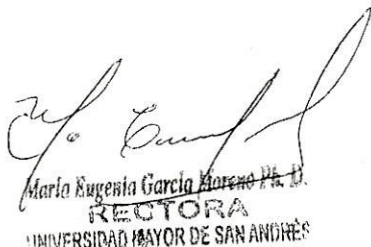 Ma. Eugenia García Moreno Ph. D.
RECTORA
UNIVERSIDAD MAYOR DE SAN ANDRÉS